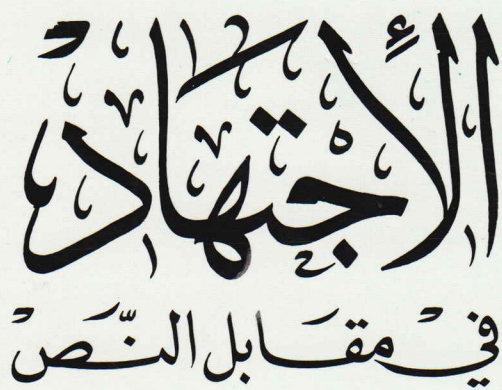 الإجتهاد
في مقابل النّص